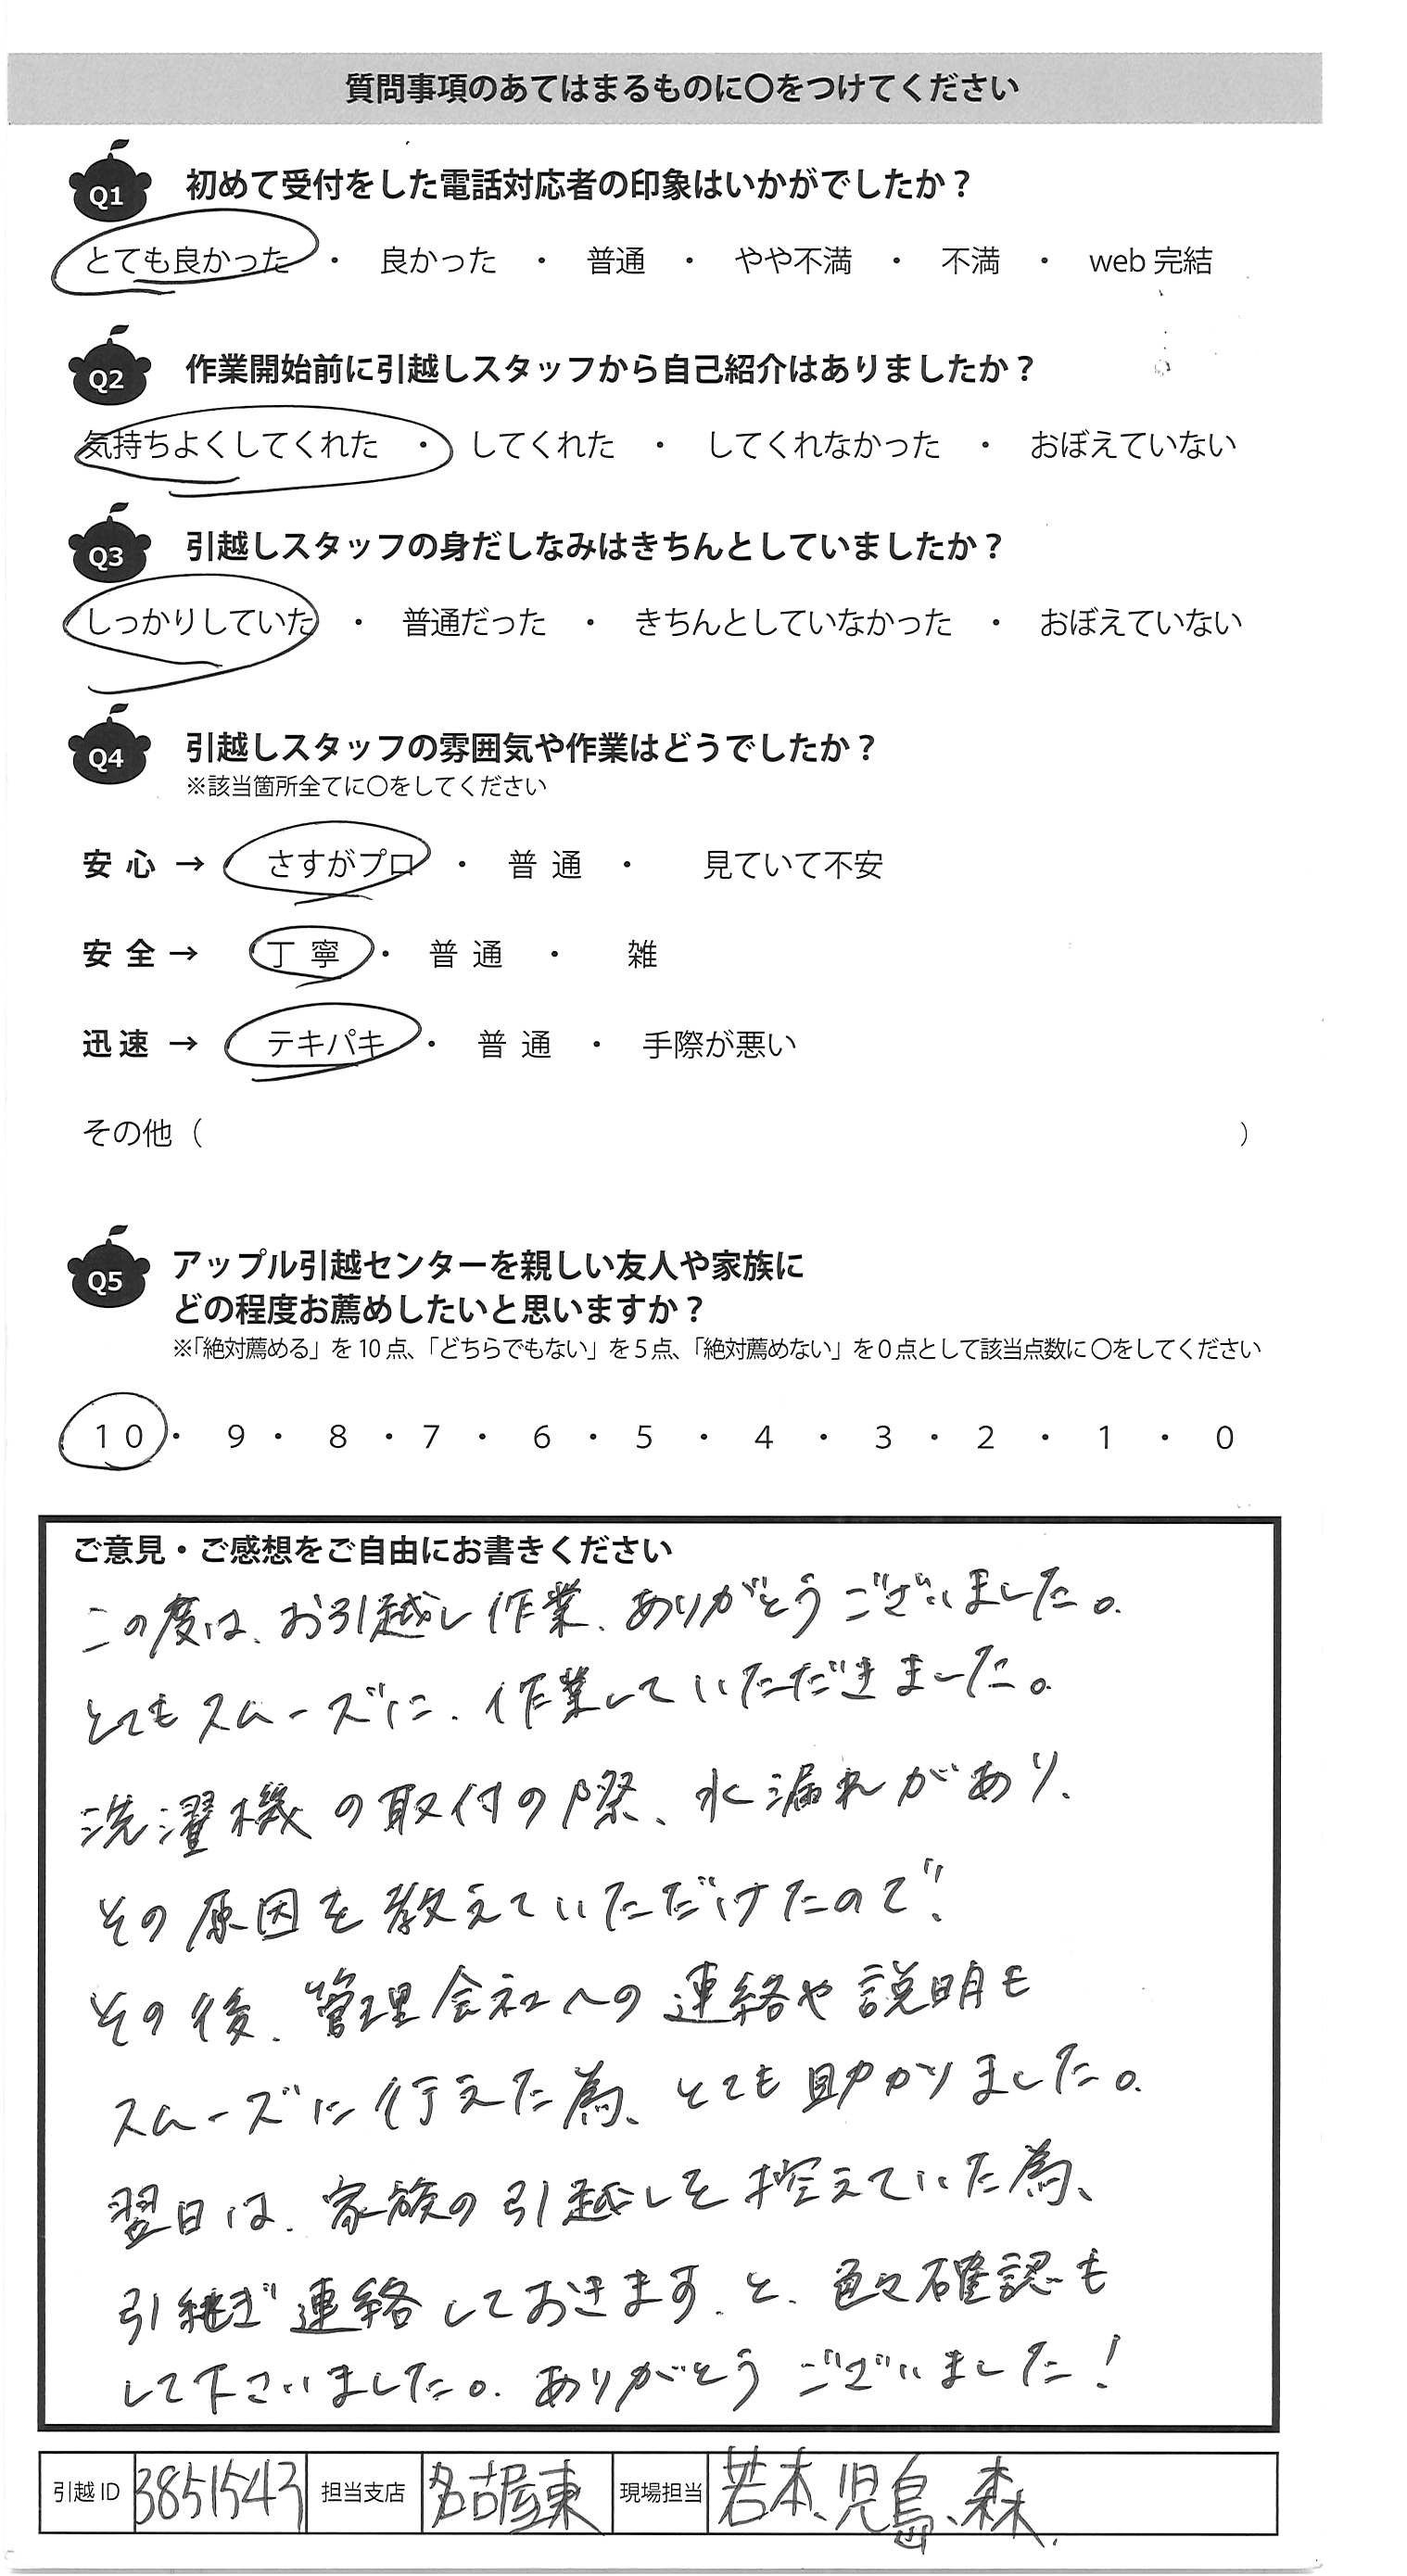 質問事項のあてはまるものに〇をつけてください
Q1 初めて受付をした電話対応者の印象はいかがでしたか？
とても良かった ・ 良かった ・ 普通 ・ やや不満 ・ 不満 ・ web 完結
Q2 作業開始前に引越しスタッフから自己紹介はありましたか？
気持ちよくしてくれた ・ してくれた ・ してくれなかった ・ おぼえていない
Q3 引越しスタッフの身だしなみはきちんとしていましたか？
しっかりしていた ・ 普通だった ・ きちんとしていなかった ・ おぼえていない
Q4 引越しスタッフの雰囲気や作業はどうでしたか？
※該当箇所全てに〇をしてください
安心 → さすがプロ ・ 普通 ・ 見ていて不安
安全 → 丁寧 ・ 普通 ・ 雑
迅速 → テキパキ ・ 普通 ・ 手際が悪い
その他（ ）
Q5 アップル引越センターを親しい友人や家族に
どの程度お薦めしたいと思いますか？
※「絶対薦める」を 10 点、「どちらでもない」を 5 点、「絶対薦めない」を 0 点として該当点数に〇をしてください
10 ・ 9 ・ 8 ・ 7 ・ 6 ・ 5 ・ 4 ・ 3 ・ 2 ・ 1 ・ 0
ご意見・ご感想をご自由にお書きください
この度は、お引越し作業、ありがとうございました。
とてもスムーズに、作業していただきました。
洗濯機の取付の際、水漏れがあり、
その原因を教えていただけたので、
その後、管理会社への連絡や説明も
スムーズに行えた為、とても助かりました。
翌日は、家族の引越しを控えていた為、
引継ぎ連絡しておきます、と、色々確認も
して下さいました。ありがとうございました！
引越 ID 3851543 担当支店 名古屋東 現場担当 若本、児島、森